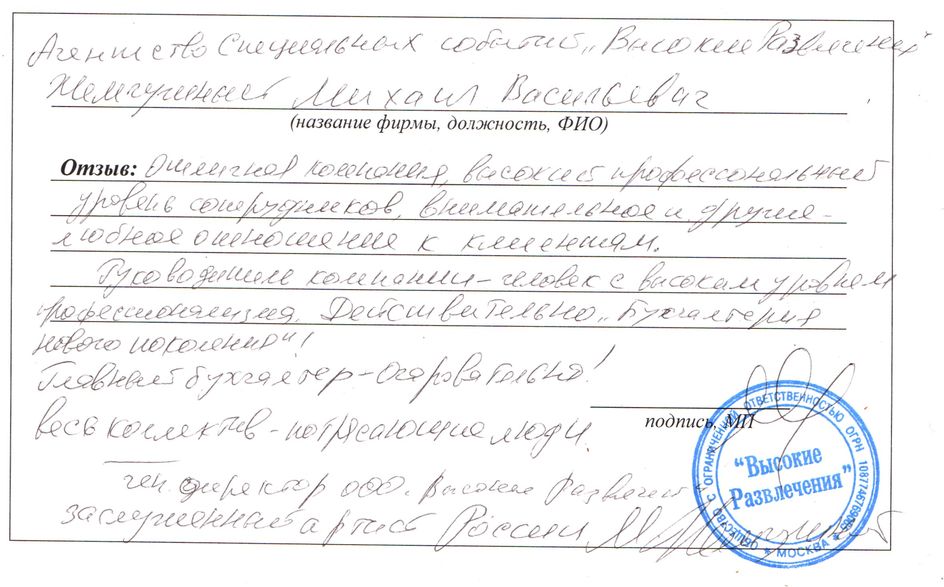 Агентство Специальных событий „Высокие Развлечения"
Жемчужный Михаил Васильевич
(название фирмы, должность, ФИО)
Отзыв: Отличная компания, высокий профессиональный
уровень сотрудников, внимательное и друже-
любное отношение к клиентам.
Руководители компании - человек с высоким уровнем
профессионализма. Действительно „Бухгалтерия
нового поколения"!
Главный бухгалтер - Очаровательна!
весь коллектив - потрясающие люди.
подпись, МП
ген. директор ООО „Высокие Развлечен
заслуженный артист России
ОБЩЕСТВО С ОГРАНИЧЕННОЙ ОТВЕТСТВЕННОСТЬЮ ОГРН
"Высокие
Развлечения"
* МОСКВА *